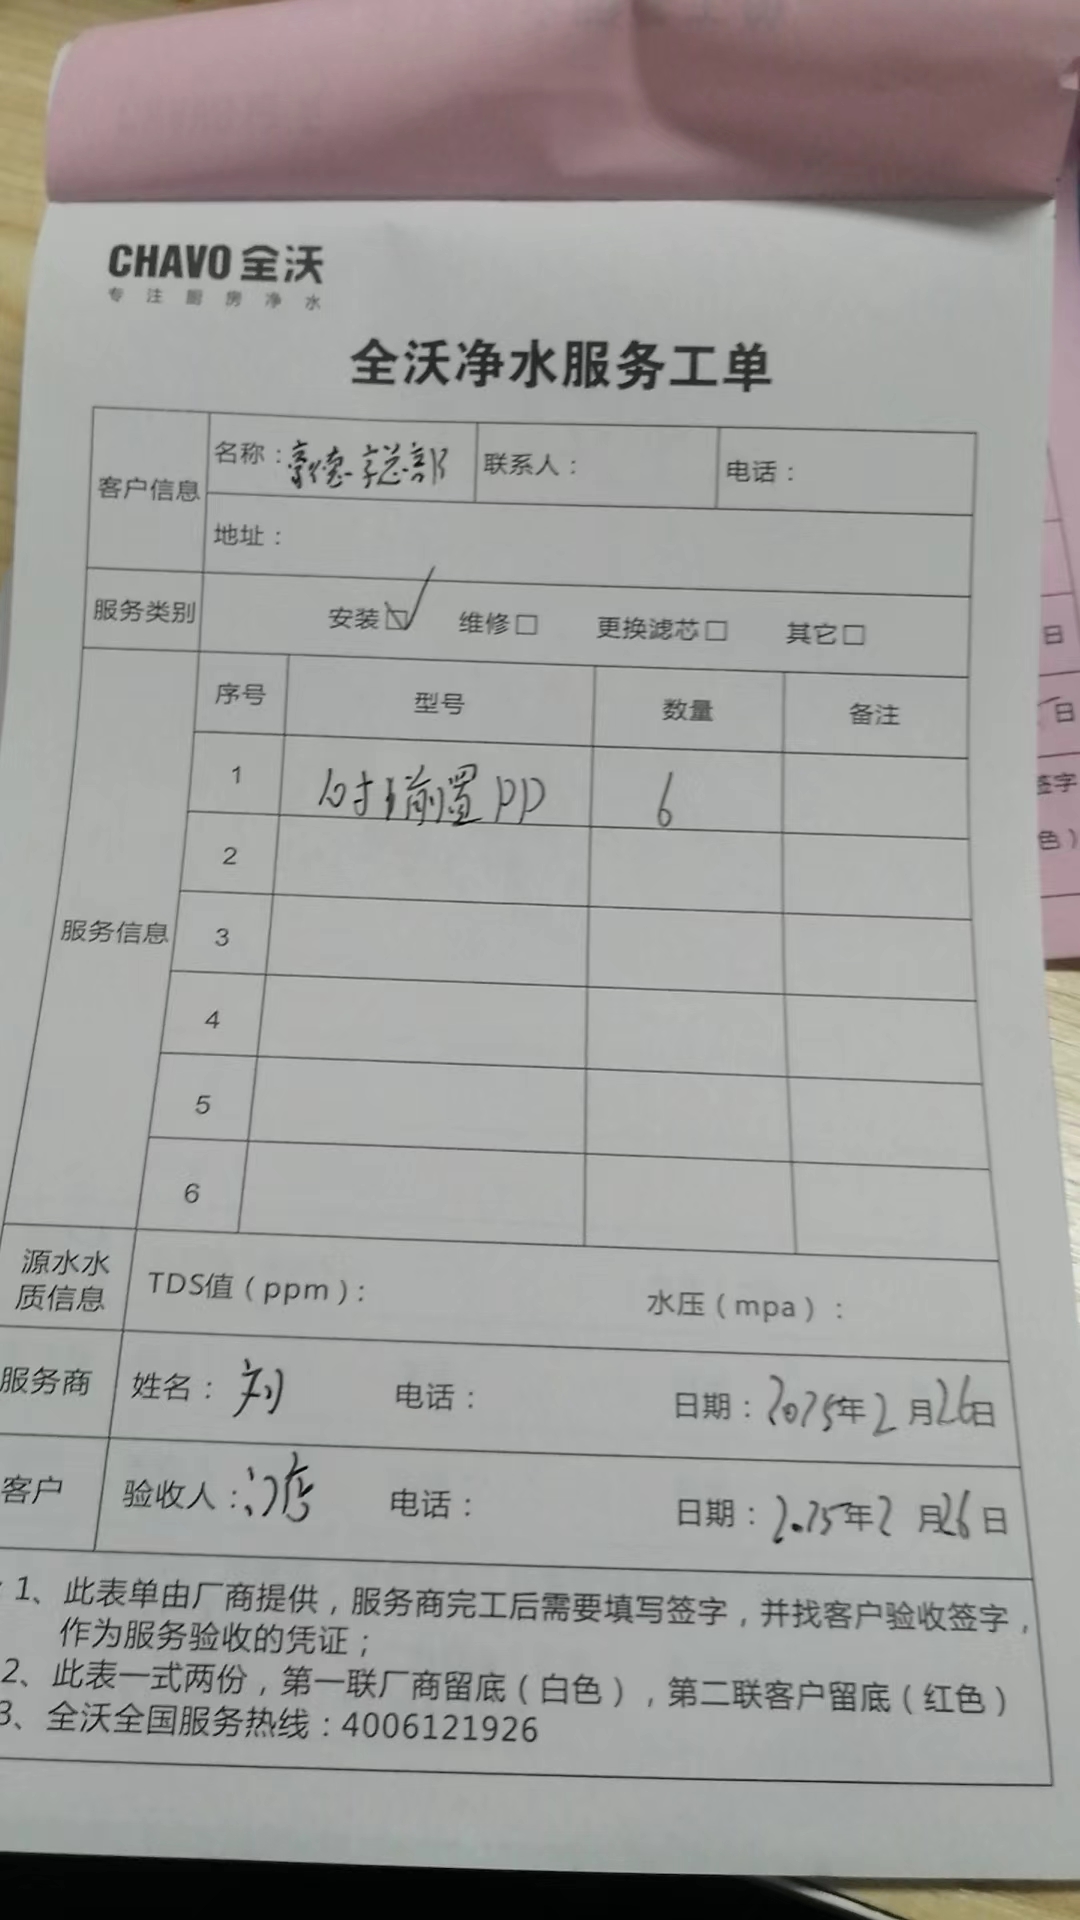 CHAVO 全沃
专注厨房净水
全沃净水服务工单
客户信息
名称： 总部 联系人： 电话：
地址：
服务类别 安装☑ 维修□ 更换滤芯□ 其它□
服务信息
序号 型号 数量 备注
1 10寸 前置PP 6
2
3
4
5
6
源水水质信息 TDS值（ppm）： 水压（mpa）：
服务商 姓名：刘 电话： 日期：2025年2月26日
客户 验收人：门店 电话： 日期：2025年2月26日
1、此表单由厂商提供，服务商完工后需要填写签字，并找客户验收签字，
作为服务验收的凭证；
2、此表一式两份，第一联厂商留底（白色），第二联客户留底（红色）
3、全沃全国服务热线：4006121926
日
日
签字
色）